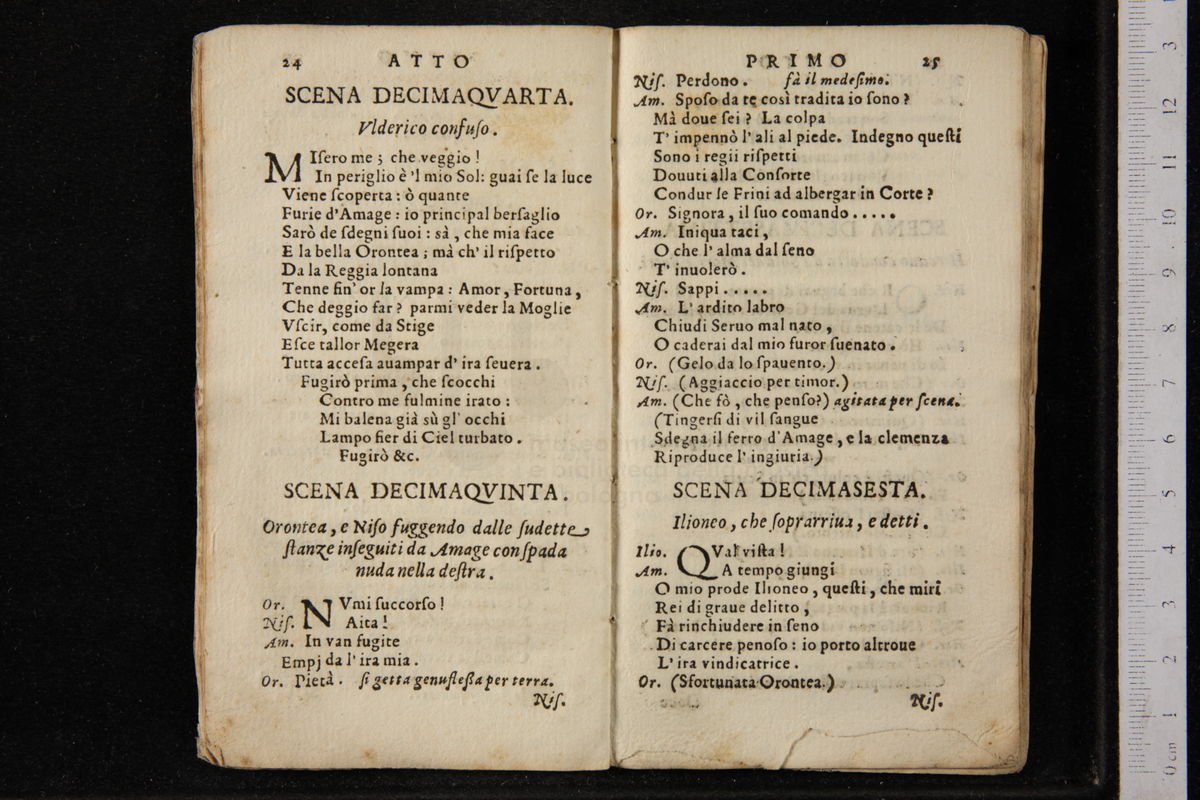 24 ATTO
SCENA DECIMAQVARTA.
Vlderico confuſo.
MIſero me ; che veggio !
In periglio è 'l mio Sol: guai ſe la luce
Viene ſcoperta : ò quante
Furie d'Amage : io principal berſaglio
Sarò de ſdegni ſuoi : sà , che mia face
E la bella Orontea ; mà ch' il riſpetto
Da la Reggia lontana
Tenne fin' or la vampa : Amor, Fortuna ,
Che deggio far ? parmi veder la Moglie
Vſcir, come da Stige
Eſce tallor Megera
Tutta acceſa auampar d' ira ſeuera .
Fugirò prima , che ſcocchi
Contro me fulmine irato :
Mi balena già sù gl' occhi
Lampo fier di Ciel turbato .
Fugirò &c.
SCENA DECIMAQVINTA.
Orontea, e Niſo fuggendo dalle ſudette
ſtanze inſeguiti da Amage con ſpada
nuda nella deſtra.
Or. NVmi ſuccorſo !
Niſ. Aita !
Am. In van fugite
Empj da l' ira mia .
Or. Pietà . ſi getta genufleſſa per terra.
Niſ.
PRIMO 25
Niſ. Perdono . fà il medeſimo.
Am. Spoſo da te così tradita io ſono ?
Mà doue ſei ? La colpa
T' impennò l' ali al piede. Indegno queſti
Sono i regii riſpetti
Douuti alla Conſorte
Condur le Frini ad albergar in Corte ?
Or. Signora , il ſuo comando . . . . .
Am. Iniqua taci ,
O che l' alma dal ſeno
T' inuolerò .
Niſ. Sappi . . . . .
Am. L' ardito labro
Chiudi Seruo mal nato ,
O caderai dal mio furor ſuenato .
Or. (Gelo da lo ſpauento.)
Niſ. (Aggiaccio per timor.)
Am. (Che fò , che penſo?) agitata per ſcena.
(Tingerſi di vil ſangue
Sdegna il ferro d'Amage , e la clemenza
Riproduce l' ingiuria.)
SCENA DECIMASESTA.
Ilioneo , che ſoprarriua , e detti .
Ilio. QVal viſta !
Am. A tempo giungi
O mio prode Ilioneo , queſti , che miri
Rei di graue delitto ,
Fà rinchiudere in ſeno
Di carcere penoſo : io porto altroue
L' ira vindicatrice .
Or. (Sfortunata Orontea.)
Niſ.